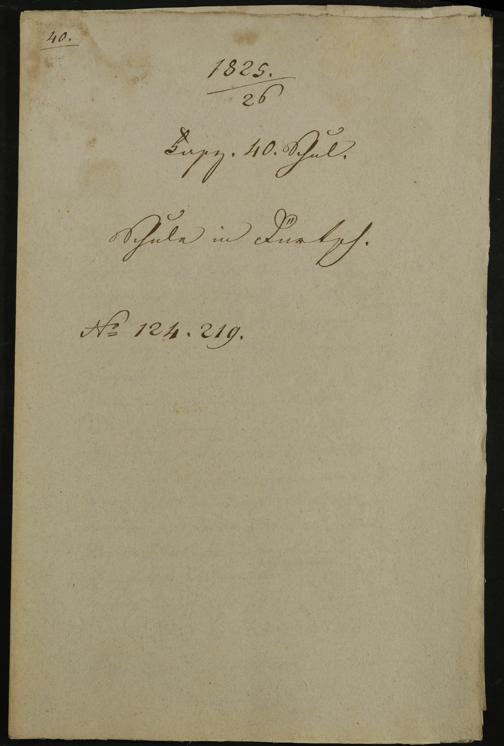 40.
1825.
26
Capp. 40. Schul.
Schule in
No 124. 219.